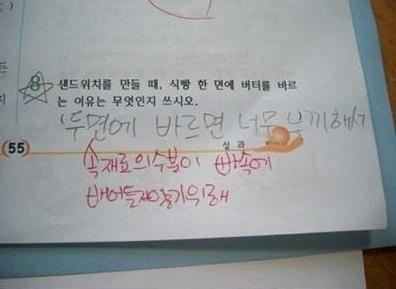 8 샌드위치를 만들 때, 식빵 한 면에 버터를 바르
는 이유는 무엇인지 쓰시오.
두면에 바르면 너무 느끼해서
55
실 과
속재료의수분이 빵속에
배어들지않게하기위해